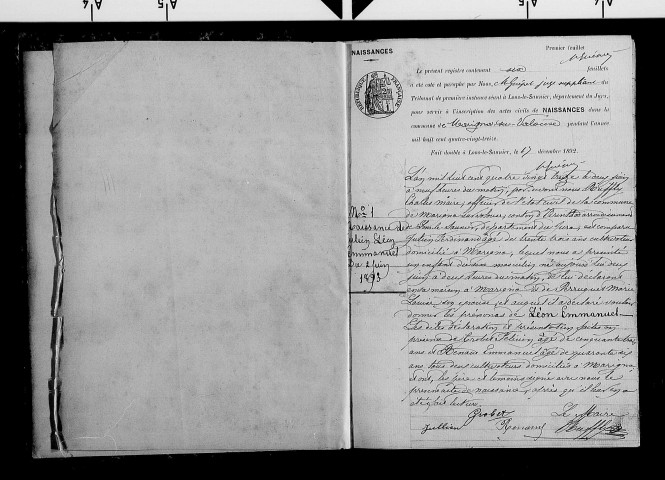 NAISSANCES
Premier feuillet
Le présent registre contenant six feuillets
a été coté et paraphé par Nous, juge suppléant du
Tribunal de première instance séant à Lons-le-Saunier, département du Jura,
pour servir à l'inscription des actes civils de NAISSANCES dans la
commune de Marigna-sur-Valouse pendant l'année
mil huit cent quatre-vingt-treize.
Fait double à Lons-le-Saunier, le 17 décembre 1892.
RÉPUBLIQUE FRANÇAISE
No 1
Naissance de
Léon
Emmanuel
Du 2 juin
1893
L'an mil huit cent quatre vingt treize le deux juin
à neuf heures du matin, par devant nous
Charles maire, officier de l'état civil de la commune
de Marigna sur Valouse, canton d'Arinthod arrondissement
de Lons le Saunier, département du Jura, est comparu
Julien Ferdinand âgé de trente trois ans cultivateur
domicilié à Marigna, lequel nous a présenté
un enfant du sexe masculin né aujourd'hui deux
juin à deux heures du matin, de lui déclarant
en sa maison à Marigna et de Marie
Louise son épouse, et auquel il a déclaré vouloir
donner les prénoms de Léon Emmanuel
Les dites déclaration et présentation faites en
présence de âgé de cinquante
ans et Emmanuel âgé de quarante
ans, tous deux cultivateurs domiciliés à Marigna
et ont, les père et témoins signé avec nous le
présent acte de naissance, après qu'il leur en a
été fait lecture.
Le Maire
Jullien